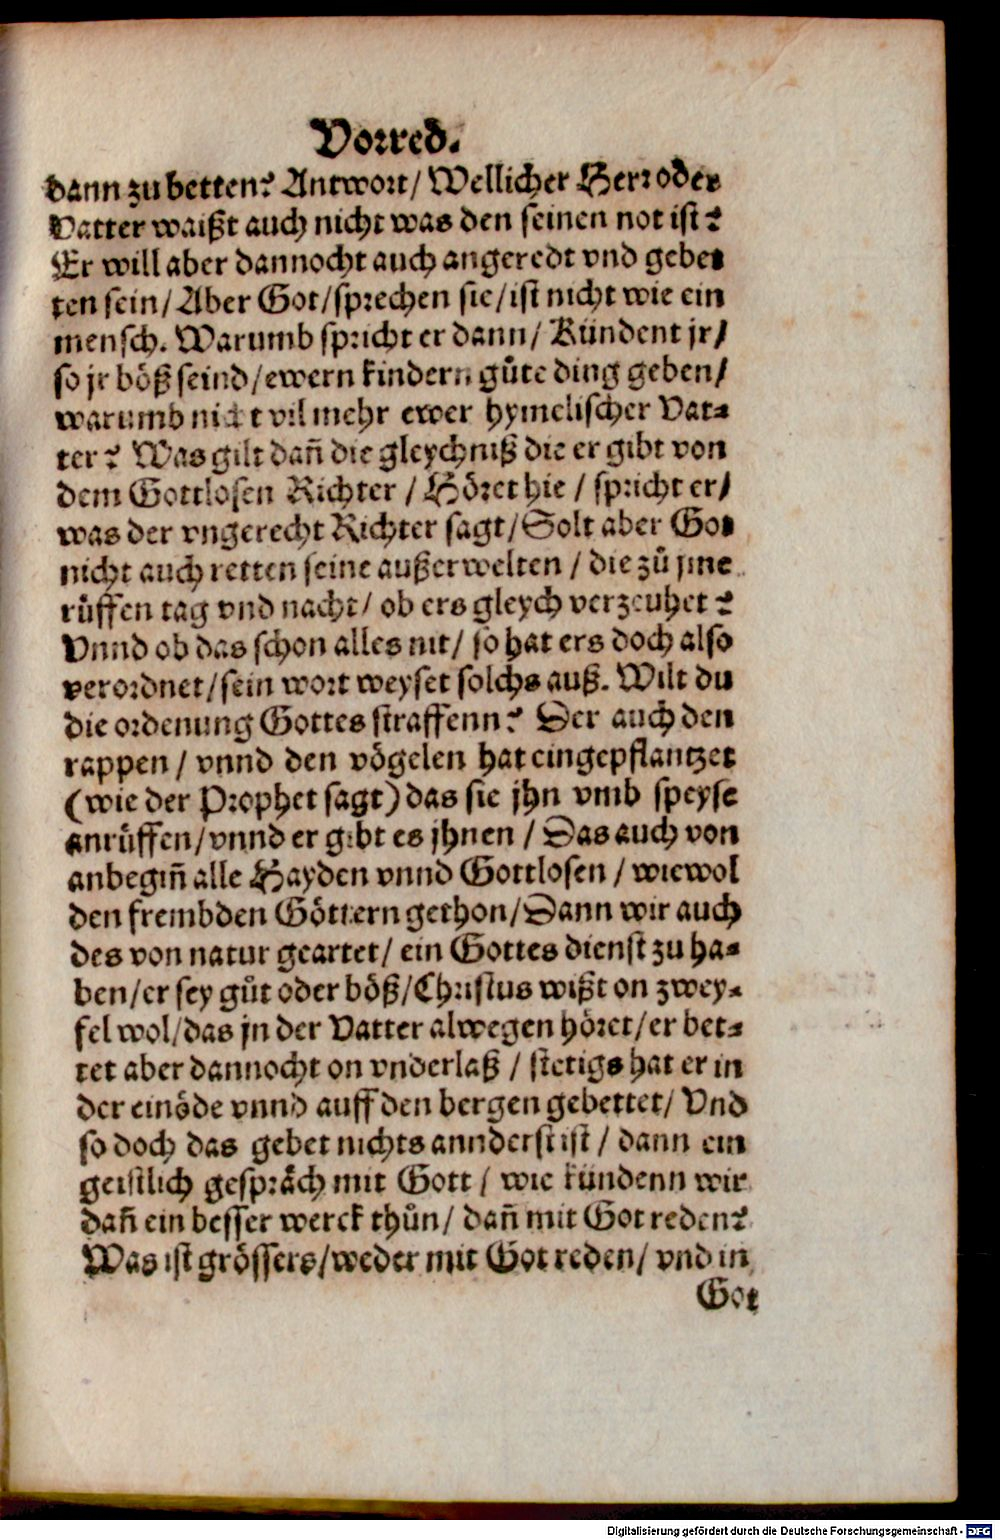 Vorred.
dann zu betten? Antwort/ Wellicher Herr oder
Vatter waißt auch nicht was den seinen not ist?
Er will aber dannocht auch angeredt vnd gebet
ten sein/ Aber Got/ sprechen sie/ ist nicht wie ein
mensch. Warumb spricht er dann/ Kündent jr/
so jr böß seind/ ewern kindern gůte ding geben/
warumb nicht vil mehr ewer hymelischer Vat-
ter? Was gilt dañ die gleychniß die er gibt von
dem Gottlosen Richter / Höret hie / spricht er/
was der vngerecht Richter sagt/ Solt aber Got
nicht auch retten seine außerwelten / die zů jme
růffen tag vnd nacht/ ob ers gleych verzeuhet?
Vnnd ob das schon alles nit/ so hat ers doch also
verordnet/ sein wort weyset solchs auß. Wilt du
die ordenung Gottes straffenn? Der auch den
rappen / vnnd den vögelen hat eingepflantzet
(wie der Prophet sagt) das sie jhn vmb speyse
anrůffen/ vnnd er gibt es jhnen / Das auch von
anbegiñ alle Hayden vnnd Gottlosen / wiewol
den frembden Göttern gethon/ Dann wir auch
des von natur geartet/ ein Gottes dienst zu ha-
ben/ er sey gůt oder böß/ Christus wißt on zwey-
fel wol/ das jn der Vatter alwegen höret/ er bet-
tet aber dannocht on vnderlaß / stetigs hat er in
der einöde vnnd auff den bergen gebettet/ Vnd
so doch das gebet nichts annderst ist / dann ein
geistlich gespräch mit Gott / wie kündenn wir
dañ ein besser werck thůn/ dañ mit Got reden?
Was ist grössers/ weder mit Got reden/ vnd in
Got
Digitalisierung gefördert durch die Deutsche Forschungsgemeinschaft - DFG